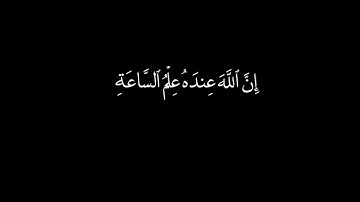 إِنَّ ٱللَّهَ عِندَهُۥ عِلْمُ ٱلسَّاعَةِ